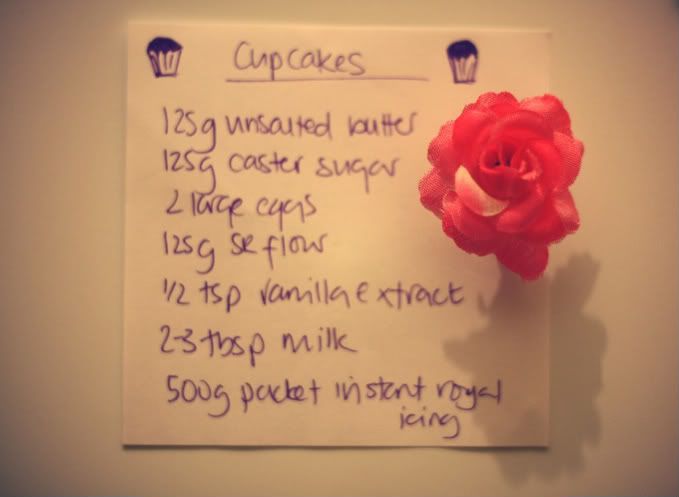 Cupcakes
125g unsalted butter
125g caster sugar
2 large eggs
125g SR flour
1/2 tsp vanilla extract
2-3 tbsp milk
500g packet instant royal
icing